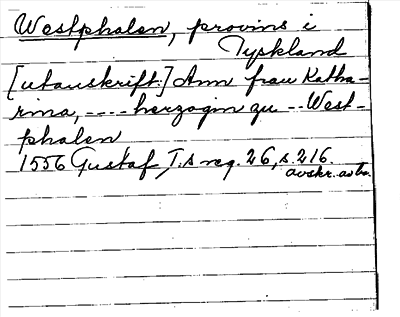 Westphalen, provins i
Tyskland
[utanskrift:] Ann frau Katha-
rina, ---- herzogin zu -- West-
phalen
1556 Gustaf I:s reg. 26, s. 216.
avskr. avtr.